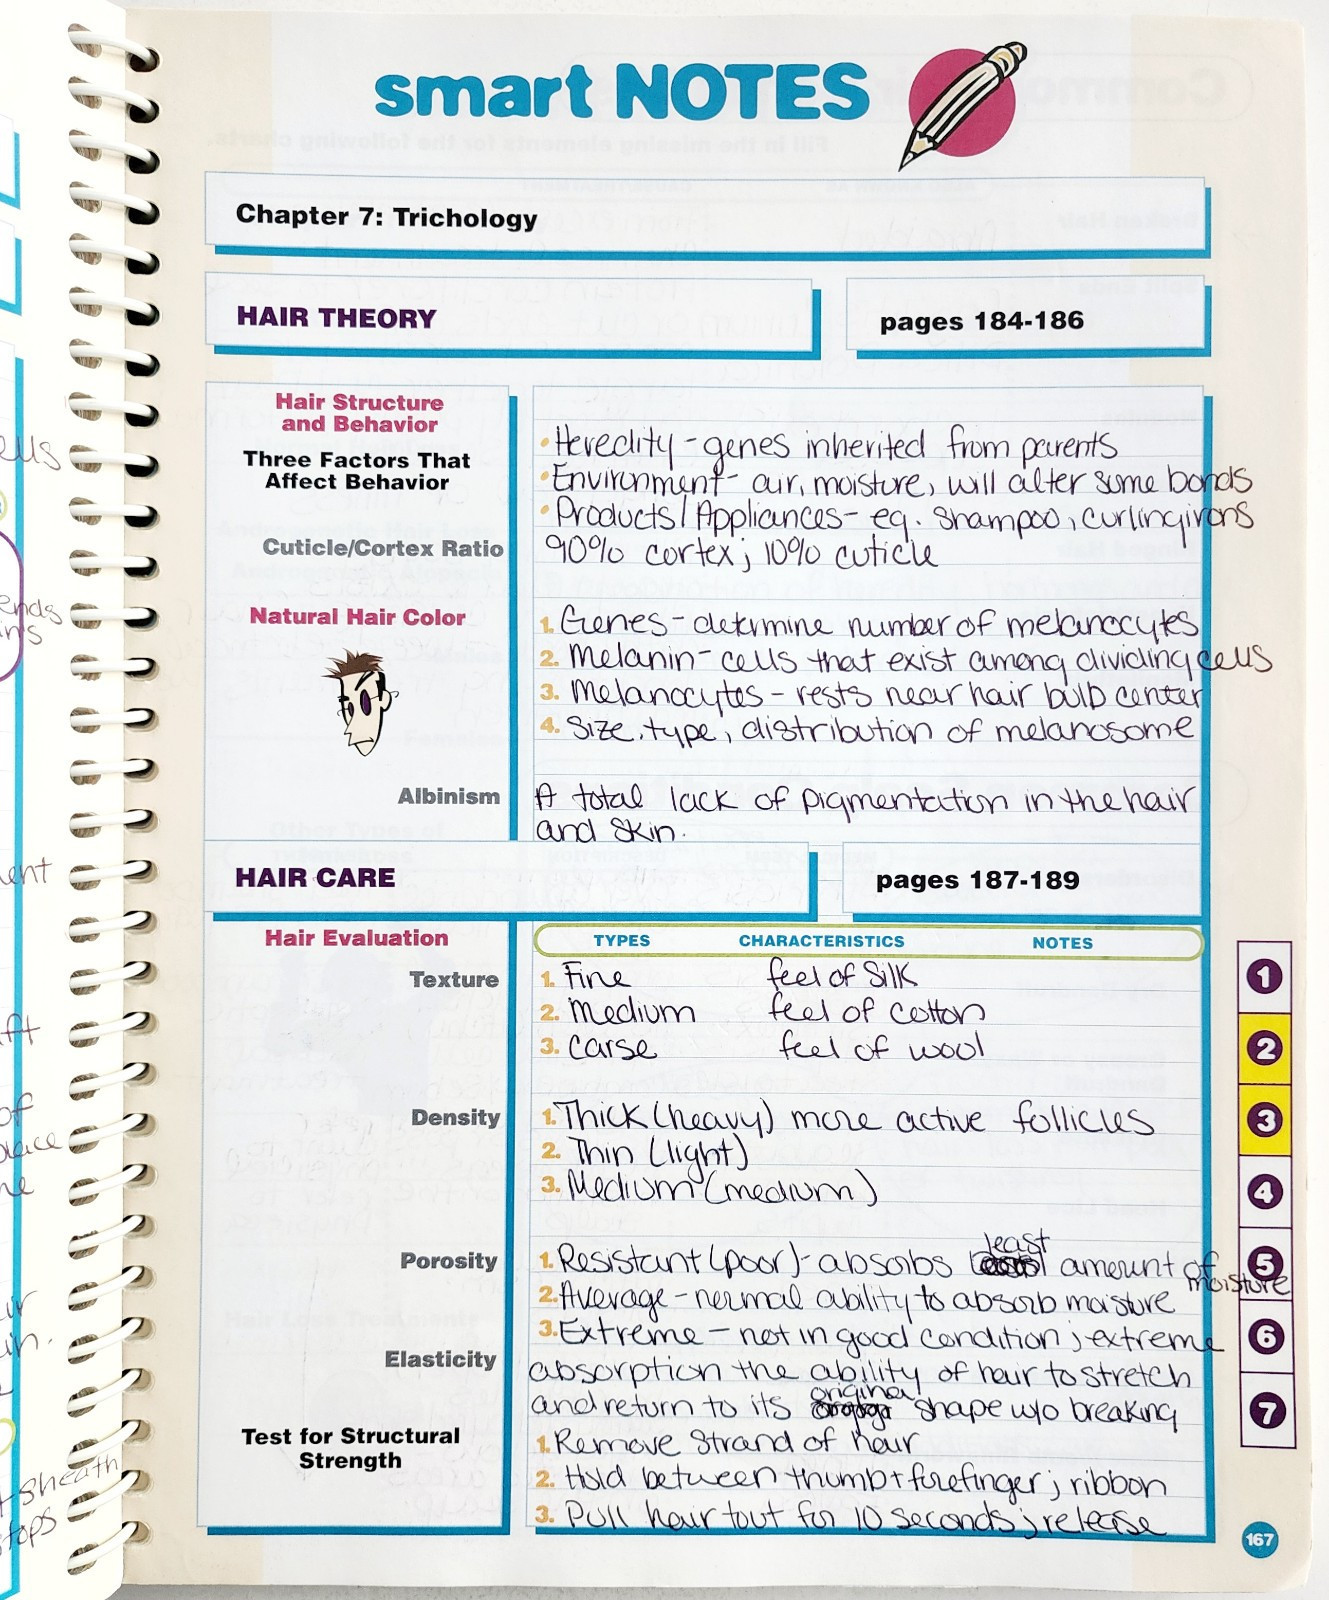 smart NOTES
Chapter 7: Trichology
HAIR THEORY
pages 184-186
Hair Structure
and Behavior
Three Factors That
Affect Behavior
• Heredity - genes inherited from parents
• Environment - air, moisture, will alter some bonds
• Products/Appliances - eg. shampoo, curling irons
Cuticle/Cortex Ratio
90% cortex; 10% cuticle
Natural Hair Color
1. Genes - determine number of melanocytes
2. Melanin - cells that exist among dividing cells
3. Melanocytes - rests near hair bulb center
4. Size, type, distribution of melanosome
Albinism
A total lack of pigmentation in the hair
and skin.
HAIR CARE
pages 187-189
Hair Evaluation
TYPES CHARACTERISTICS NOTES
Texture
1. Fine feel of silk
2. Medium feel of cotton
3. Carse feel of wool
Density
1. Thick (heavy) more active follicles
2. Thin (light)
3. Medium (medium)
Porosity
1. Resistant (poor) - absorbs least amount of moisture
2. Average - normal ability to absorb moisture
3. Extreme - not in good condition; extreme
Elasticity
absorption the ability of hair to stretch
and return to its original shape w/o breaking
Test for Structural
Strength
1. Remove strand of hair
2. Hold between thumb + forefinger; ribbon
3. Pull hair tout for 10 seconds; release
1
2
3
4
5
6
7
167
ends
of
sheath
stops